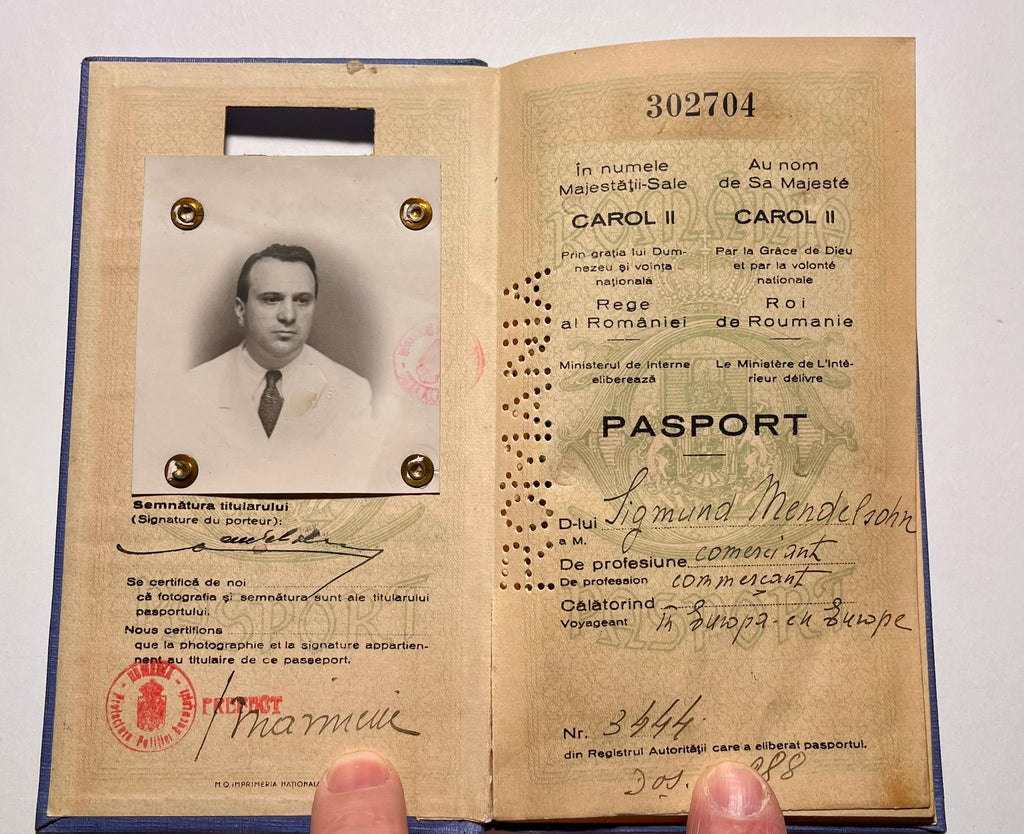 Semnătura titularului
(Signature du porteur):
Se certifică de noi
că fotografia și semnătura sunt ale titularului
pasportului.
Nous certifions
que la photographie et la signature appartien-
nent au titulaire de ce passeport.
ROMANIA
Prefectura Poliției
PREFECT
M.O. IMPRIMERIA NAȚIONALĂ
ROMANIA
302704
În numele
Majestății-Sale
CAROL II
Prin grația lui Dum-
nezeu și voința
națională
Rege
al României
Ministerul de Interne
eliberează
Au nom
de Sa Majesté
CAROL II
Par la Grâce de Dieu
et par la volonté
nationale
Roi
de Roumanie
Le Ministère de L'Inté-
rieur délivre
PASPORT
D-lui Sigmund Mendelsohn
a M.
De profesiune comerciant
De profession commerçant
Călătorind
Voyageant în Europa - en Europe
Nr. 3444.
din Registrul Autorității care a eliberat pasportul.
Dos. 288